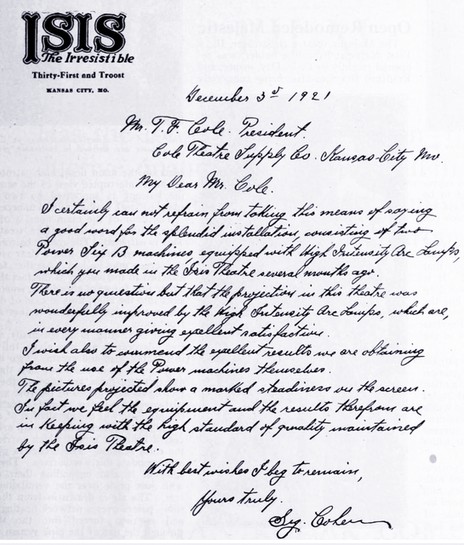 ISIS
The Irresistible
Thirty-First and Troost
KANSAS CITY, MO.
December 3d 1921
Mr. T. F. Cole. President.
Cole Theatre Supply Co. Kansas-City Mo.
My Dear Mr. Cole.
I certainly can not refrain from taking this means of saying
a good word for the splendid installation, consisting of two
Power Six B machines equipped with High Intensity Arc Lamps,
which you made in the Isis Theatre several months ago.
There is no question but that the projection in this theatre was
wonderfully improved by the High Intensity Arc Lamps, which are,
in every manner giving excellent satisfaction.
I wish also to commend the excellent results we are obtaining
from the use of the Power machines themselves.
The pictures projected show a marked steadiness on the screen.
In fact we feel the equipment and the results therefrom are
in keeping with the high standard of quality maintained
by the Isis Theatre.
With best wishes I beg to remain,
Yours truly.
Sig. Cohen